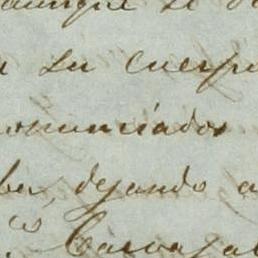 aunque se
su cuerpo
onunciados
ber, dejando a
Carvajal